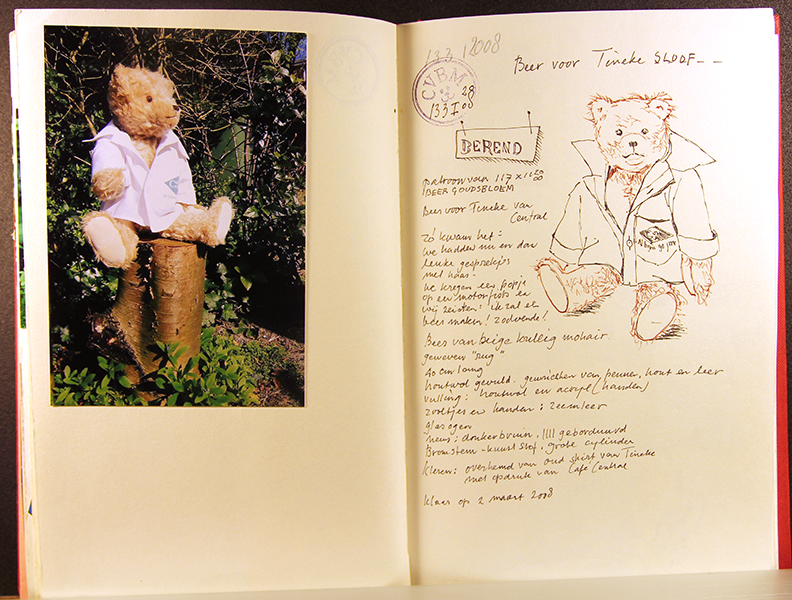 133 / 2008
Beer voor Tineke SLOOF--
CVBM
28
133 I 08
BEREND
patroon van 117 x 1420
BEER GOUDSBLOEM
Beer voor Tineke van
Central
Zó kwam het:
We hadden nu en dan
leuke gesprekjes
met haar.
We kregen een popje
op een motorfiets en
wij zeiden: ik zal een
beer maken! zodoende!
Beer van beige krullig mohair
geweven "rug"
40 cm lang
houtwol gevuld. gewrichten van pennen, hout en leer
vulling: houtwol en acryl (handen)
zooltjes en handen: zeemleer
glas ogen
neus: donkerbruin, |||| geborduurd
Bromstem - kunststof, grote cylinder
Kleren: overhemd van oud shirt van Tineke
met opdruk van Café Central
Klaar op 2 maart 2008